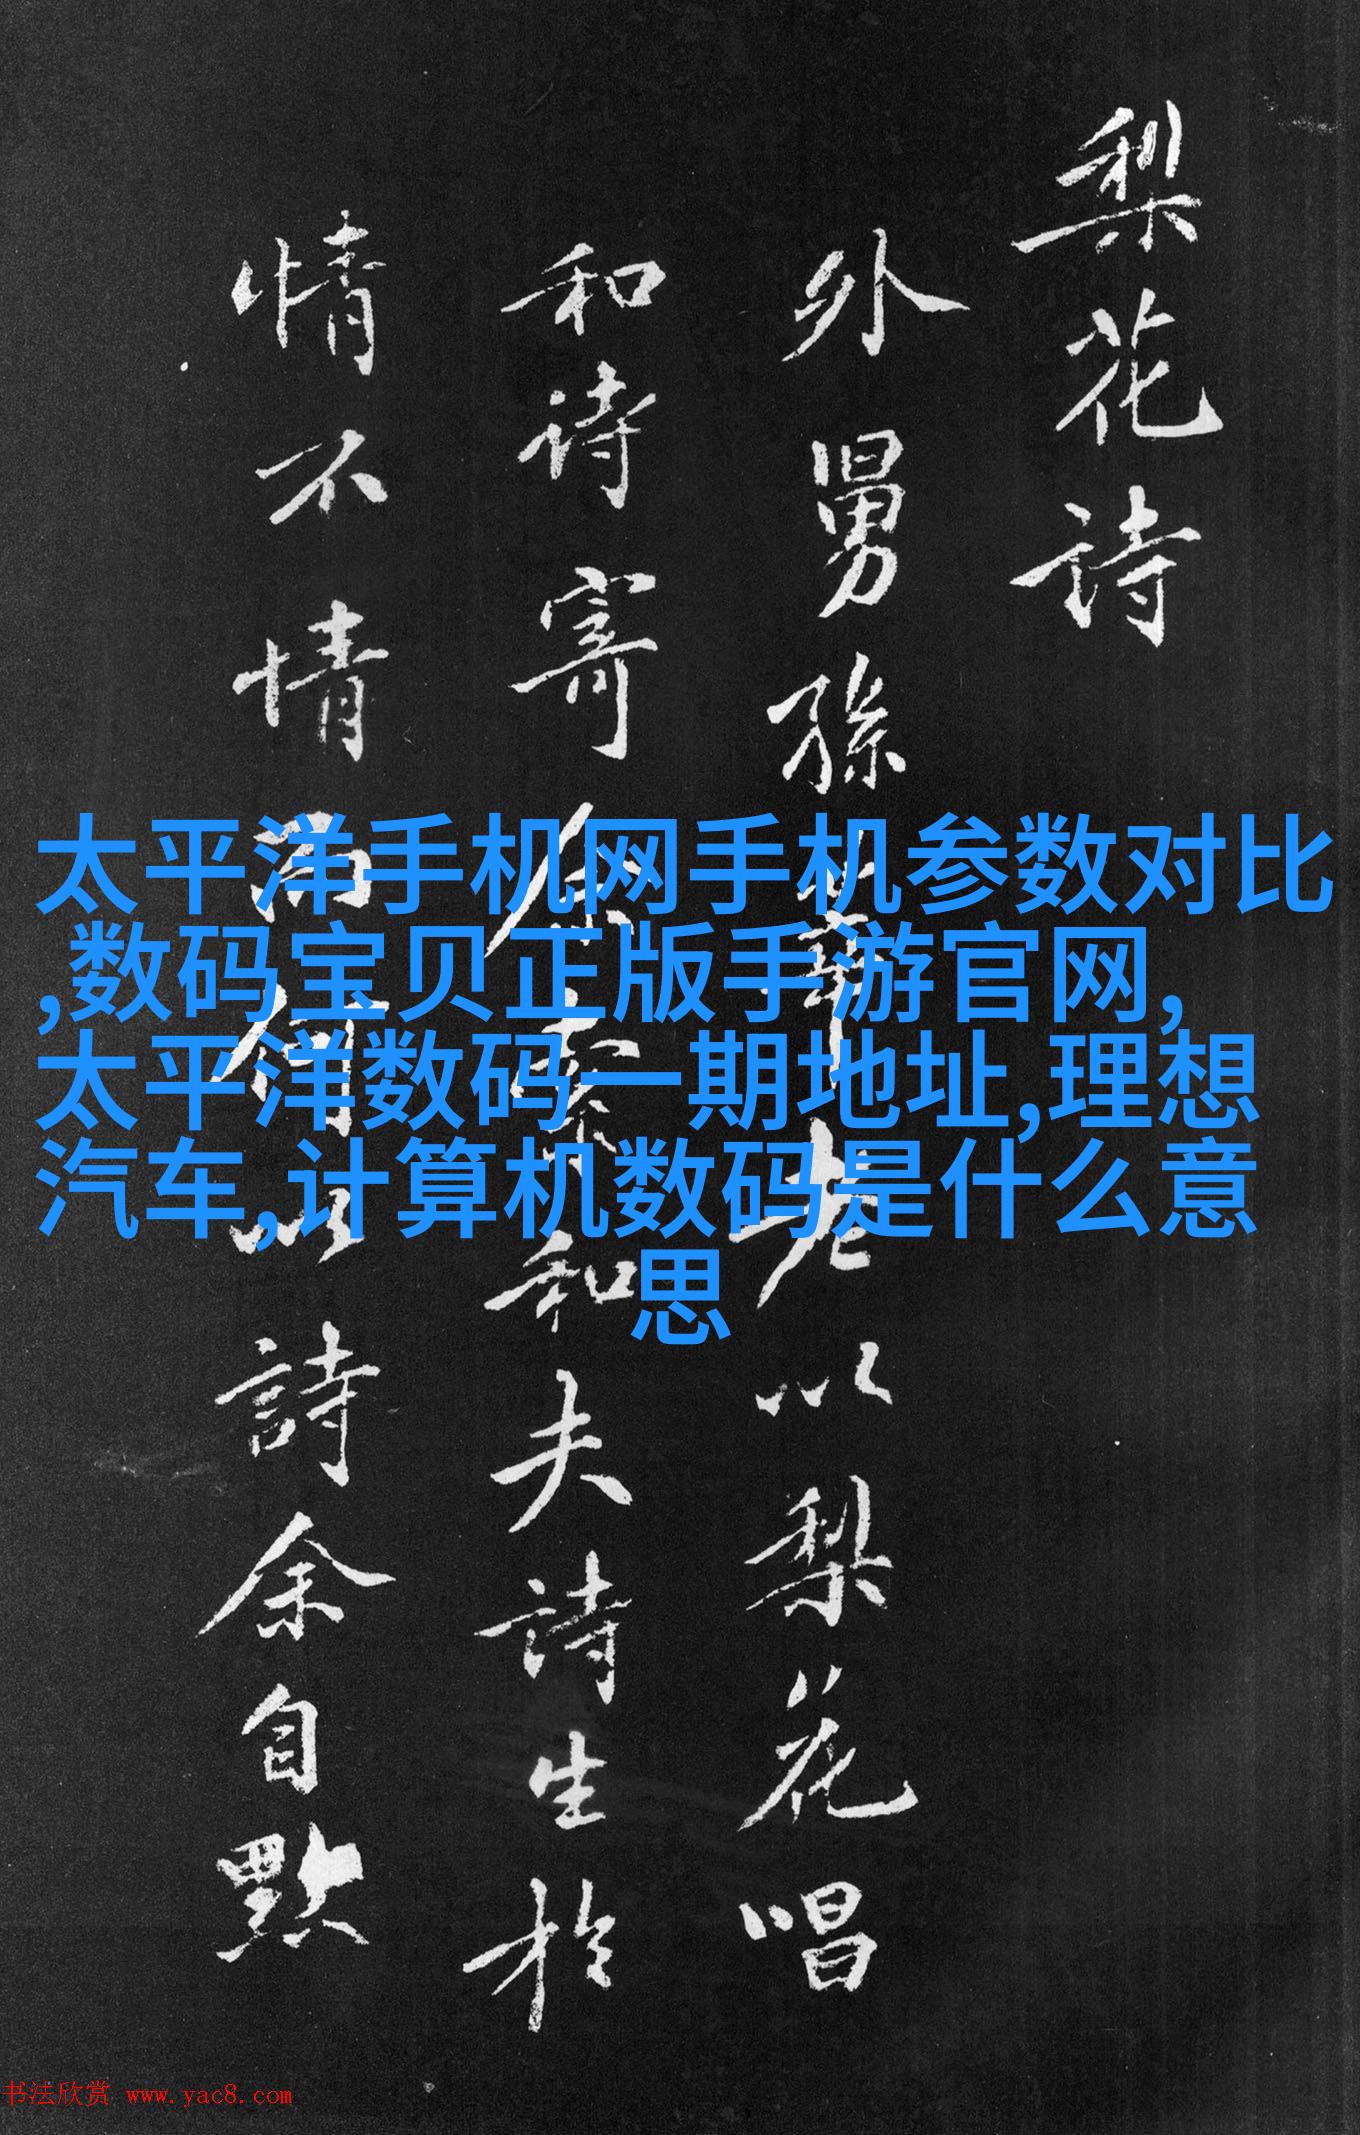 梨花诗
外舅孫莘老以梨花唱
和诗寄余索和夫詩生於
情不情而何以詩余自點
太平洋手机网手机参数对比
,数码宝贝正版手游官网,
太平洋数码一期地址,理想
汽车,计算机数码是什么意
思
书法欣赏 www.yac8.com